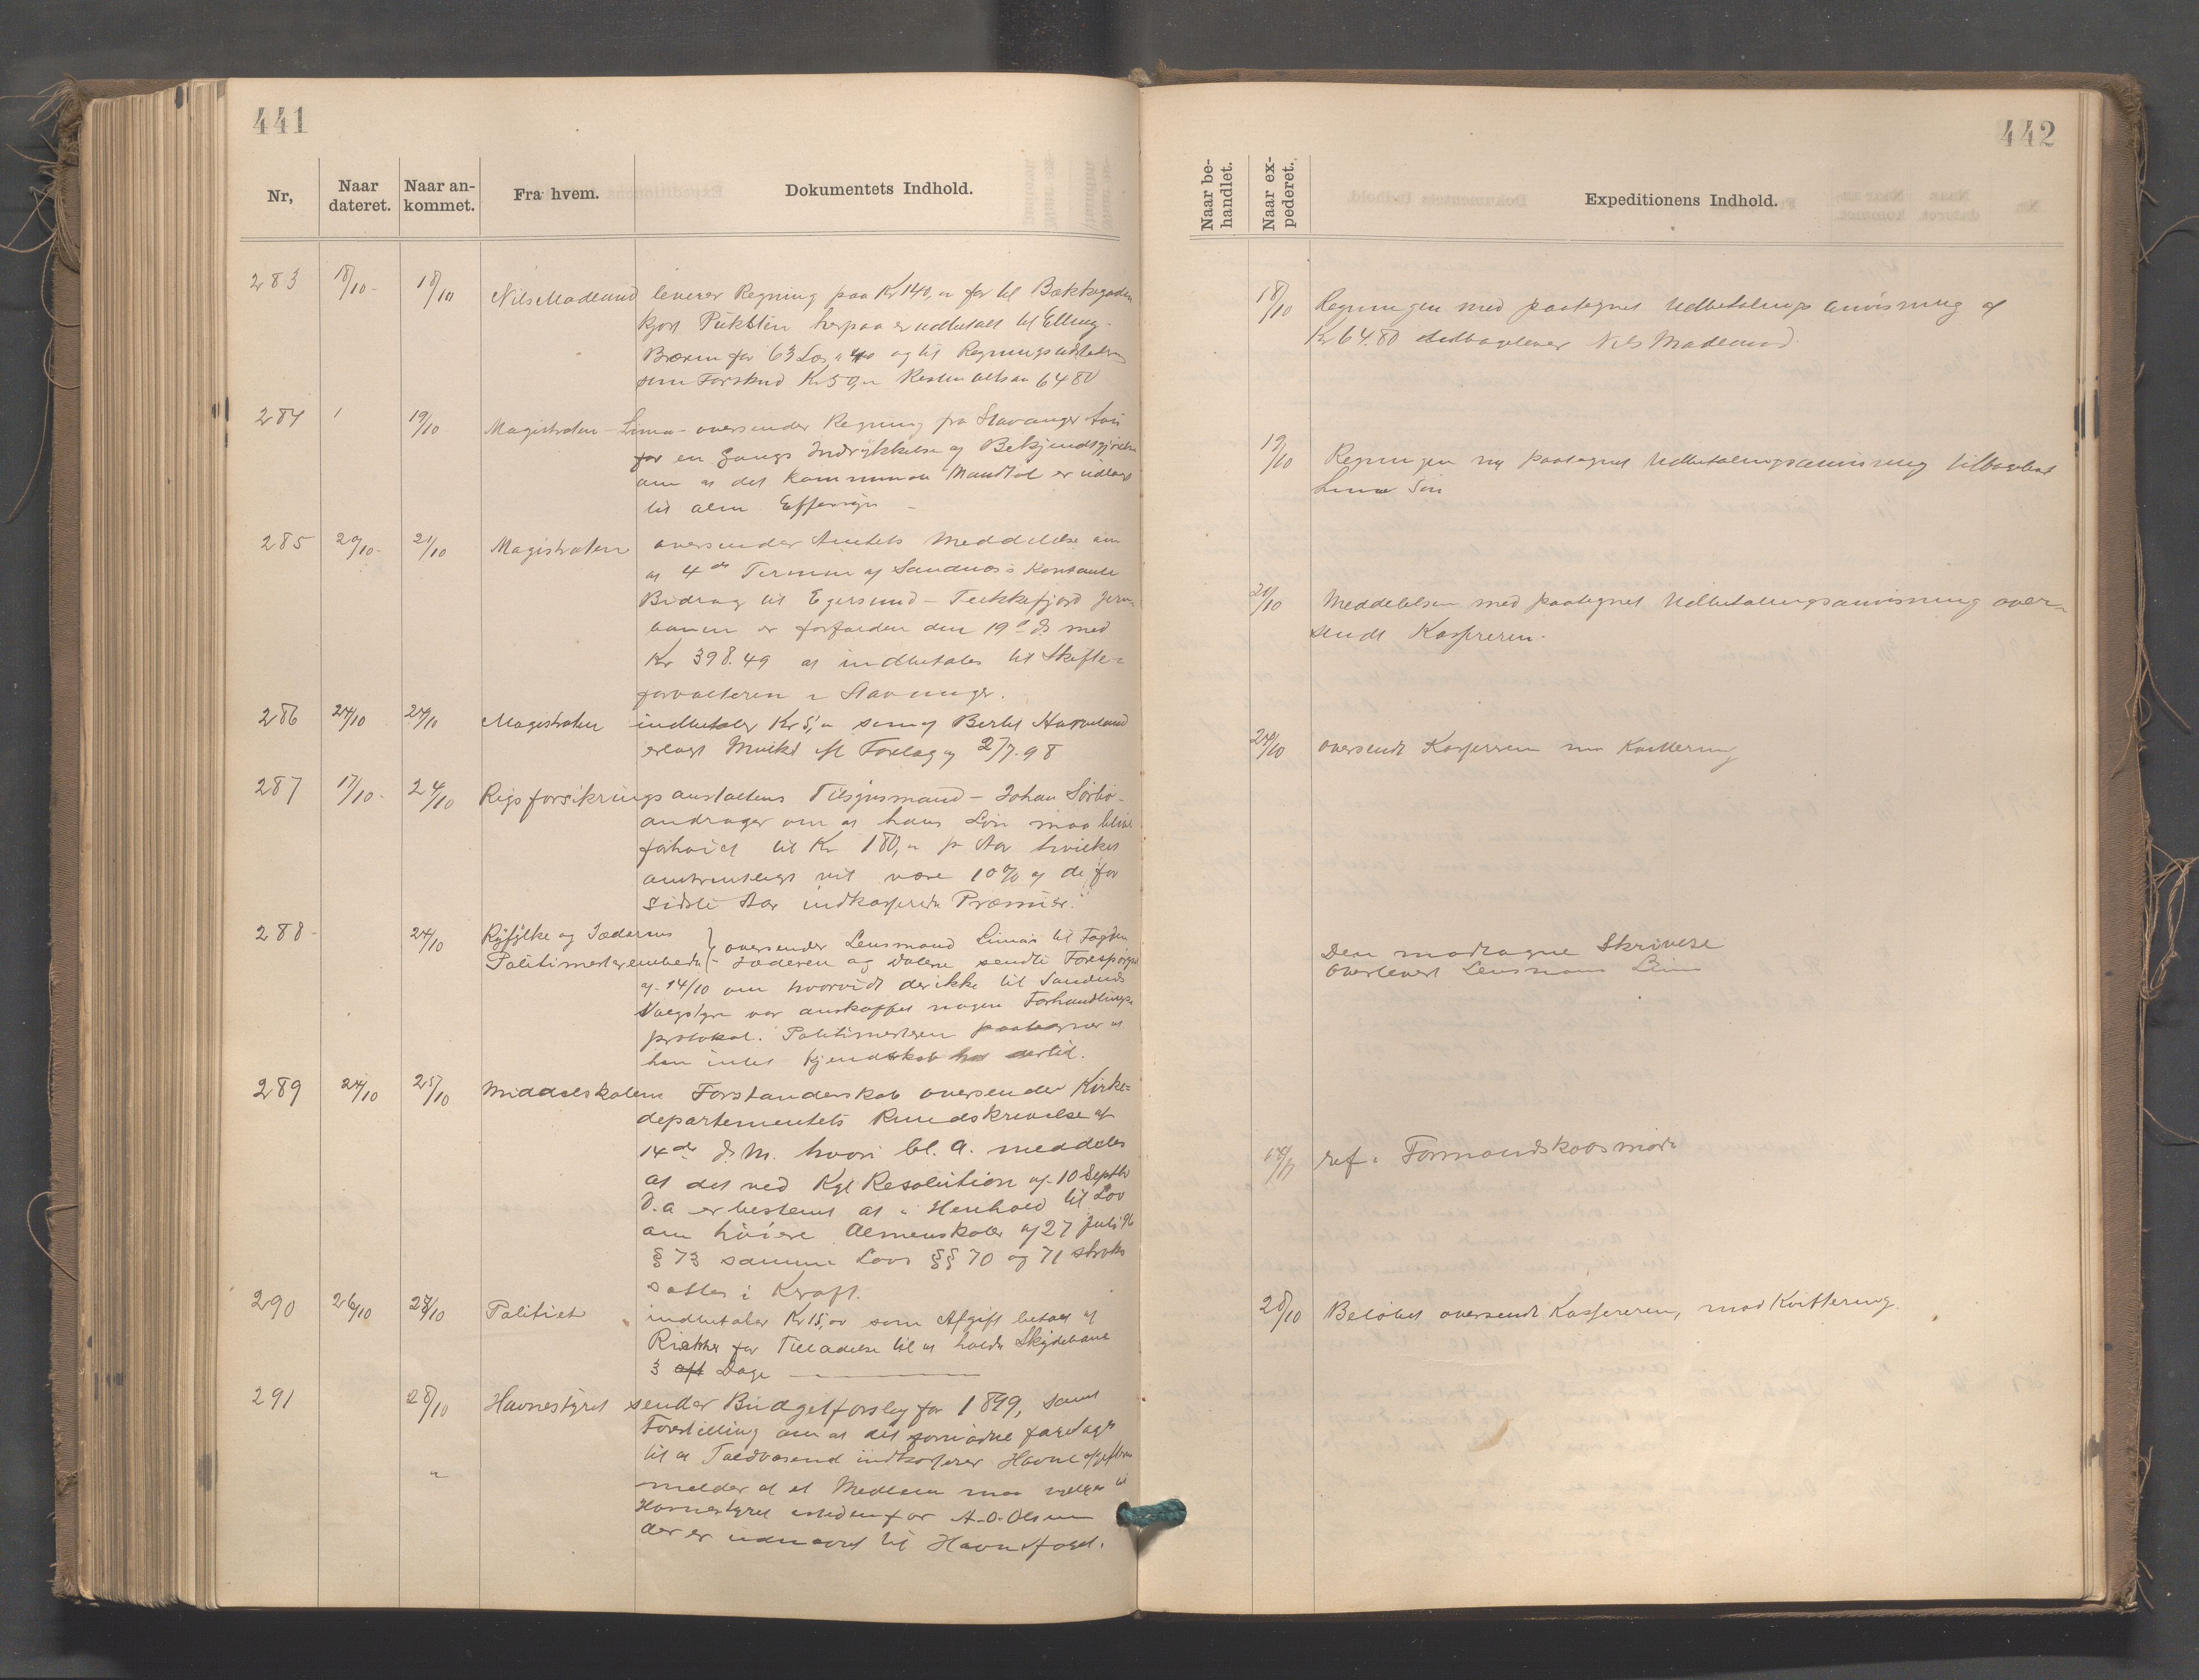 441
Nr,
Naar dateret.
Naar an-kommet.
Fra hvem.
Dokumentets Indhold.
283 18/10- 18/10 Nils Madland leverer Regning paa Kr 140,- for til Bækkegaden
kjørt Pukksten herpaa er udbetalt til Elling
for 63 Læs a og til
som Forskud Kr 50,- Resten altsaa 64 80
284 19/10 Magistraten - Lima - oversender Regning fra Stavanger Avis
for en Gangs Indrykkelse af Bekjendtgjørelse
om at det kommunale Mandtal er udlagt
til alm. Eftersyn -
285 20/10- 21/10 Magistraten oversender Amtets Meddelelse om
at 4de Termin af Sandnes's Kontante
Bidrag til Egersund - Flekkefjord Jern-
banen er forfalden den 19de ds med
Kr 398.49 at indbetales til Skifte-
forvalteren i Stavanger.
286 24/10 24/10 Magistraten indbetaler Kr 5,- som af Bertel
erlagt Mulkt eft Forelæg af 2/7.98
287 17/10- 24/10 Rigsforsikringsanstaltens Tilsynsmand - Johan Sørbø -
andrager om at hans Løn maa blive
forhøiet til Kr 180,- pr Aar hvilket
omtrentligt vil være 10% af de for
sidste Aar indkasserede Præmier.
288- 24/10 Ryfylke og Jæderens
Politimesterembede oversender Lensmand Limas til Fogden
Jæderen og Dalene sendte Forespørgsel
af 14/10 om hvorvidt der ikke til Sandnes
Valgstyre var anskaffet nogen Forhandlings-
protokol. Politimesteren paategner at
han intet Kjendskab har dertil.
289 24/10 25/10 Middelskolens Forstanderskab oversender Kirke-
departementets Rundskrivelse af
14de ds. M. hvori bl. a. meddeles
at det ved Kgl Resolution af 10 Septbr
d.a er bestemt at i Henhold til Lov
om høiere Almenskoler af 27 Juli 96
§ 73 samme Lovs §§ 70 og 71 straks
sættes i Kraft.
290 26/10 27/10 Politiet indbetaler Kr 15,00 som Afgift betalt af
for Tilladelse til at holde Skydebane
3 aft Dage
291 28/10 Havnestyret sender Budgetforslag for 1899, samt
Forestilling om at det fornødne foretages
til at Toldvæsenet indkasserer Havneafgifterne
" melder at et Medlem maa vælges til
Havnestyret istedenfor A. O. Olsen
der er udnævnt til Havnefoged.
442
Naar be-handlet.
Naar ex-pederet.
Expeditionens Indhold.
18/10 Regningen med paategnet Udbetalingsanvisning af
Kr 64.80 tilbagelever Nils Madland.
19/10 Regningen m paategnet Udbetalingsanvisning tilbagesendt
Lima
21/10 Meddelelsen med paategnet Udbetalingsanvisning over-
sendt Kassereren.
24/10 oversendt Kassereren m Kvittering
Den modtagne Skrivelse
overlevert Lensmand Lima
ref. i Formandskabsmøde
28/10 Beløbet oversendt Kassereren, mod Kvittering.